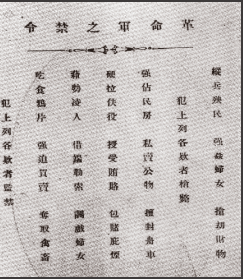 革命軍之禁令
縱兵殃民 強姦婦女 搶刧財物
犯上列各款者槍斃
強佔民房 私賣公物 擅封舟車
硬拉伕役 授受賄賂 包賭庇煙
藉勢凌人 借端勒索 調戲婦女
吃食鴉片 強迫買賣 奪取禽畜
犯上列各款者監禁